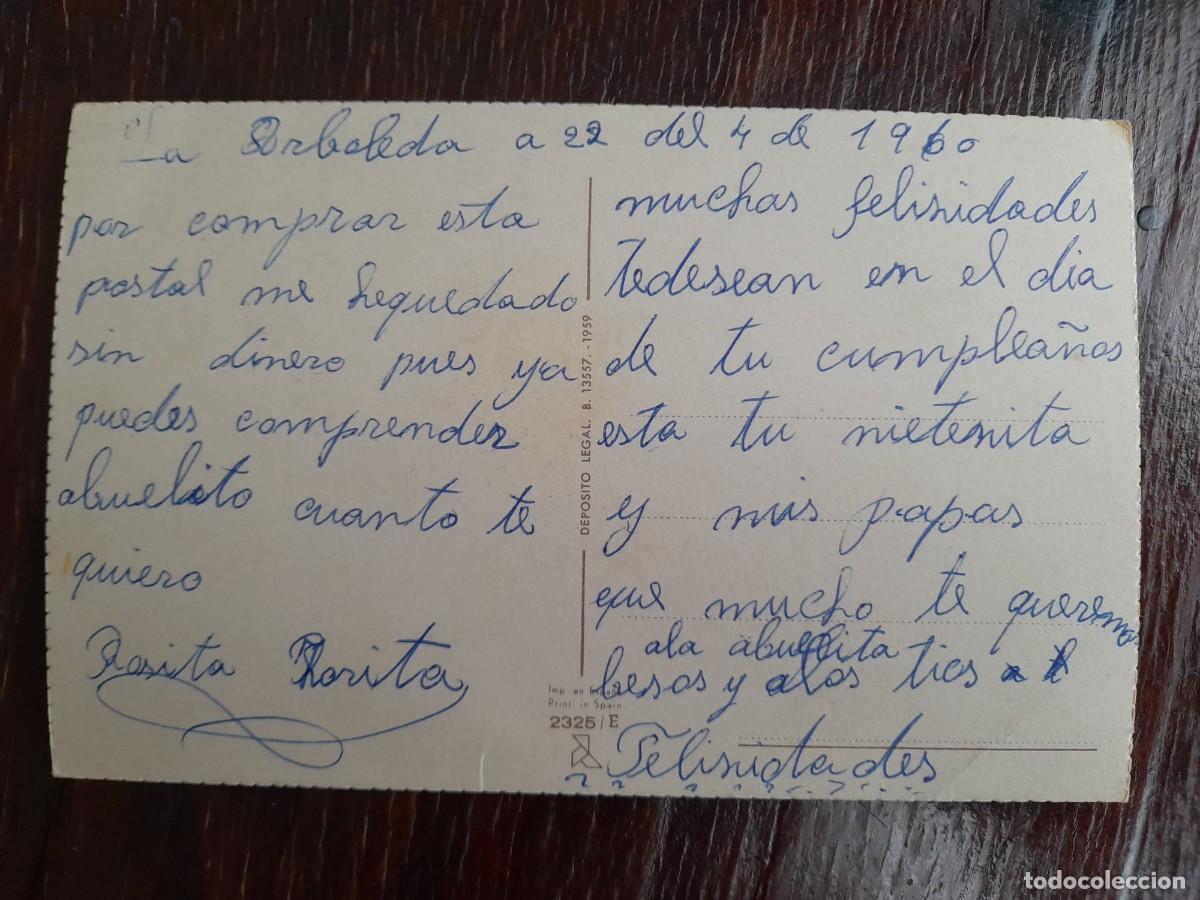 La Arboleda a 22 del 4 de 1960
por comprar esta
postal me hequedado
sin dinero pues ya
puedes comprender
abuelito cuanto te
quiero
Rosita
muchas felisidades
Tedesean en el dia
de tu cumpleaños
esta tu nietesita
y mis papas
que mucho te queremos
ala abuelita
besos y alos tios
Felisidades
DEPOSITO LEGAL. B. 13557. - 1959
Imp en España
Print in Spain
2325/E
todocoleccion